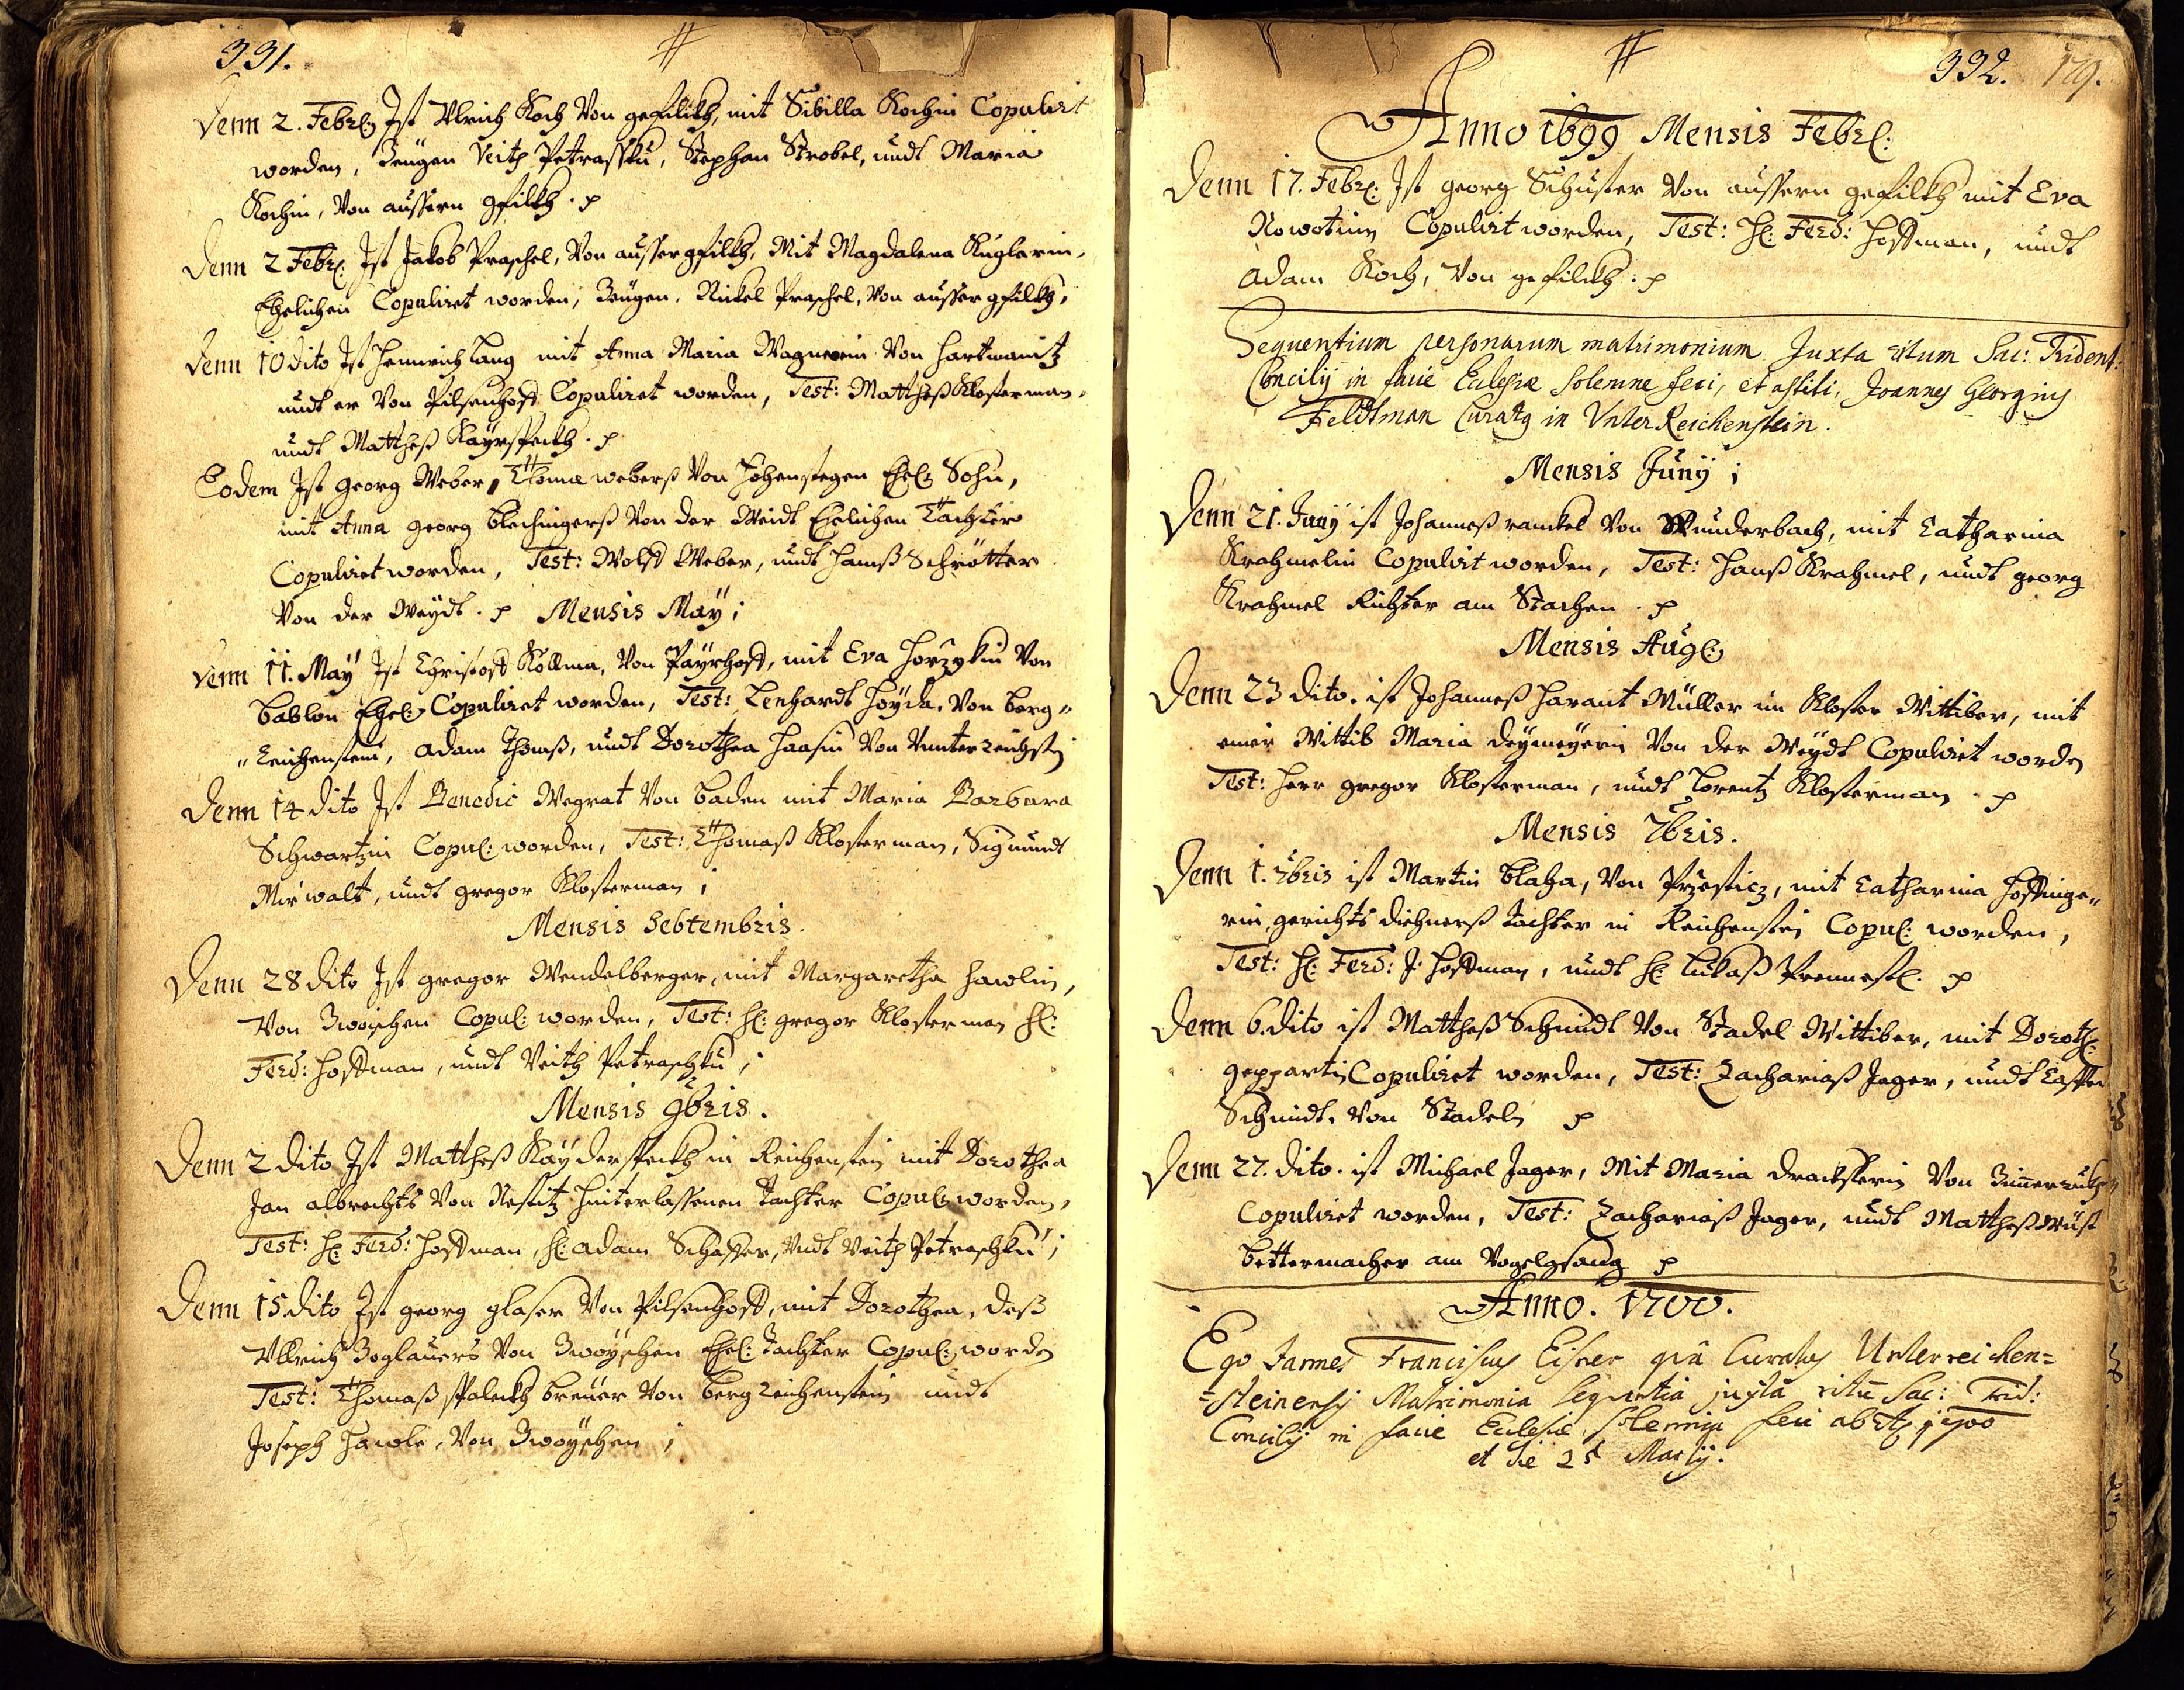 331.
Denn 2. Febr: Ist Ulrich Koch Von gefilkh, mit Sibilla Kochin Copulirt
worden, Zeugen Veith Petrassku, Stephan Strobel, undt Maria
Kochin, Von aussern gfilkh. p
Denn 2 Febr: Ist Jakob Praschel, Von aussergfilkh, Mit Magdalena Kuglerin,
Ehelichen Copuliret worden, Zeugen, Nickel Praschel, Von aussergfilkh,
Denn 10 dito Ist Heinrich Lang mit Anna Maria Wagnerin Von Hartmanitz
undt er Von Pilsenhoff Copuliret worden, Test: Matthesß Klosterman,
undt Matthesß p
Eodem Ist Georg Weber, Thomæ weberß Von Hohenstegen Ehel: Sohn,
mit Anna georg blechingerß Von der Weidt Ehelichen Tachter
Copuliret worden, Test: Wolff Weber, undt Hanß Schrötter
Von der Weydt. p Mensis May;
Denn 11. May Ist Christoff Köllma, Von Payrhoff, mit Eva Von
bablon Ehel: Copuliret worden, Test: Lenhardt Heyda, Von berg„
„reichenstein, adam Thomß, undt Dorothea Haasin Von Unter reichstn
Denn 14 dito Ist Benedic Wegrat Von baden mit Maria Barbara
Schwartzin Copul: worden, Test: Thomaß Klosterman, Sigmundt
Mirwalt, undt gregor Klosterman;
Mensis Sebtembris.
Denn 28 dito Ist gregor Wendelberger, mit Margaretha Hawlin,
Von Zwoischen Copul: worden, Test: H: gregor Klosterman H:
Ferd: Hoffman, undt Veith Petraschku;
Mensis 9bris.
Denn 2 dito Ist Matthesß in Reichenstein mit Dorothea
Jan albrechts Von Nestitz Hinterlassenen tachter Copul: worden,
Test: H: Ferd: Hoffman, H: adam Schaffer, Undt Veith Petraschku;
Denn 15 dito Ist georg glaser Von Pilsenhoff, mit Dorothea, deß
Ullrich Zoglauers Von Zwoyschen Ehel: Tachter Copul: worden
Test: Thomaß breuer Von berg reichenstein undt
Joseph Hawle, Von Zwoyschen;
332. 179.
Anno 1699 Mensis Febr:
Denn 17. Febr: Ist georg Schuster Von aussern gefilkh mit Eva
Nowotnin Copulirt worden, Test: H: Ferd: Hoffman, undt
adam Koch, Von gefilckh: p
Sequentium personarum matrimonium Juxta ritum Sac: Trident:
Concilij in facie Eclesiæ solemne feci, et astiti, Joannes Georgius
Feldtman Curatg in UnterReichenstein.
Mensis Junij;
Denn 21. Junij ist Johanneß ranckel Von Wunderbach, mit Catharina
Krahmelin Copulirt worden, Test: Hanß Krahmel, undt georg
Krahmel Richter am Stachen. p
Mensis Aug:
Denn 23 dito. ist Johanneß Harant Müller im Kloster Wittiber, mit
einer Wittib Maria deymeyerin Von der Weydt Copuliret worden
Test: Herr gregor Klosterman, undt Lorentz Klosterman. p
Mensis 7bris.
Denn 1. 7bris ist Martin blaha, Von Przesticz, mit Catharina Hoffinge„
rin, gerichts diehnerß tachter in Reichenstein Copul: worden,
Test: H: Ferd: J: Hoffman, undt H: Lukaß p
Denn 6. dito ist Matthesß Schmidt Von Stadel Wittiber, mit Doroth:
geppartin Copuliret worden, Test: Zachariaß Jager, undt
Schmidt, Von Stadeln p
Denn 27. dito. ist Michael Jager, Mit Maria dracksterin Von
Copuliret worden, Test: Zachariaß Jager, undt Matthesß
bettermacher am Vogelgsang p
Anno. 1700.
Ego Joannes Franciscus Eisner qua Curatus Unterreichen=
=steinensis Matrimonia sequentia juxta ritu Sac: Trid:
Concilij in facie Eclesiæ solemnia feci ab Ao 1700
et die 25 Martij.